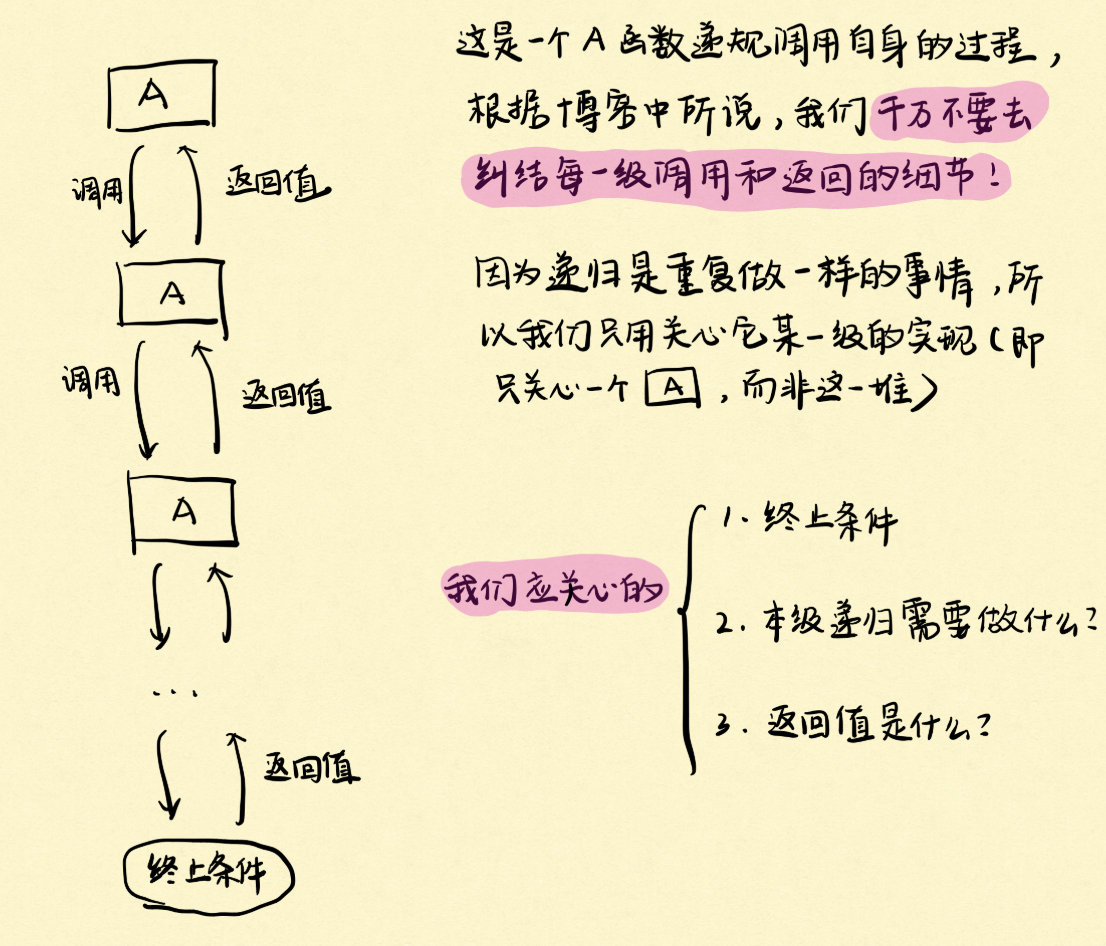 A
调用
返回值
A
调用
返回值
A
...
返回值
终止条件
这是一个 A 函数递规调用自身的过程，
根据博客中所说，我们千万不要去
纠结每一级调用和返回的细节！
因为递归是重复做一样的事情，所
以我们只用关心它某一级的实现（即
只关心一个 A ，而非这一堆）
我们应关心的
1. 终止条件
2. 本级递归需要做什么？
3. 返回值是什么？